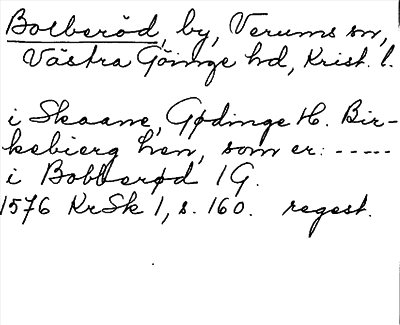 Bolberöd, by, Verums sn,
Västra Göinge hd, Krist. l.
i Skaane, Gødinge H. Bir-
kebierg Len, som er: -----
i Bobberød 1 G.
1576 KrSk 1, s. 160. regest.